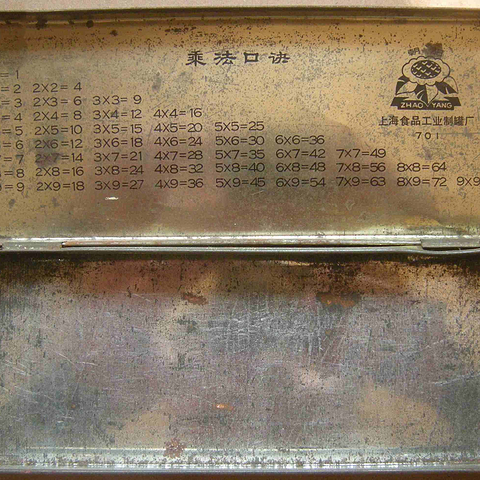 乘法口诀
= 1
= 2 2×2= 4
= 3 2×3= 6 3×3= 9
= 4 2×4= 8 3×4=12 4×4=16
= 5 2×5=10 3×5=15 4×5=20 5×5=25
= 6 2×6=12 3×6=18 4×6=24 5×6=30 6×6=36
= 7 2×7=14 3×7=21 4×7=28 5×7=35 6×7=42 7×7=49
= 8 2×8=16 3×8=24 4×8=32 5×8=40 6×8=48 7×8=56 8×8=64
= 9 2×9=18 3×9=27 4×9=36 5×9=45 6×9=54 7×9=63 8×9=72 9×9
ZHAO YANG
上海食品工业制罐厂
701